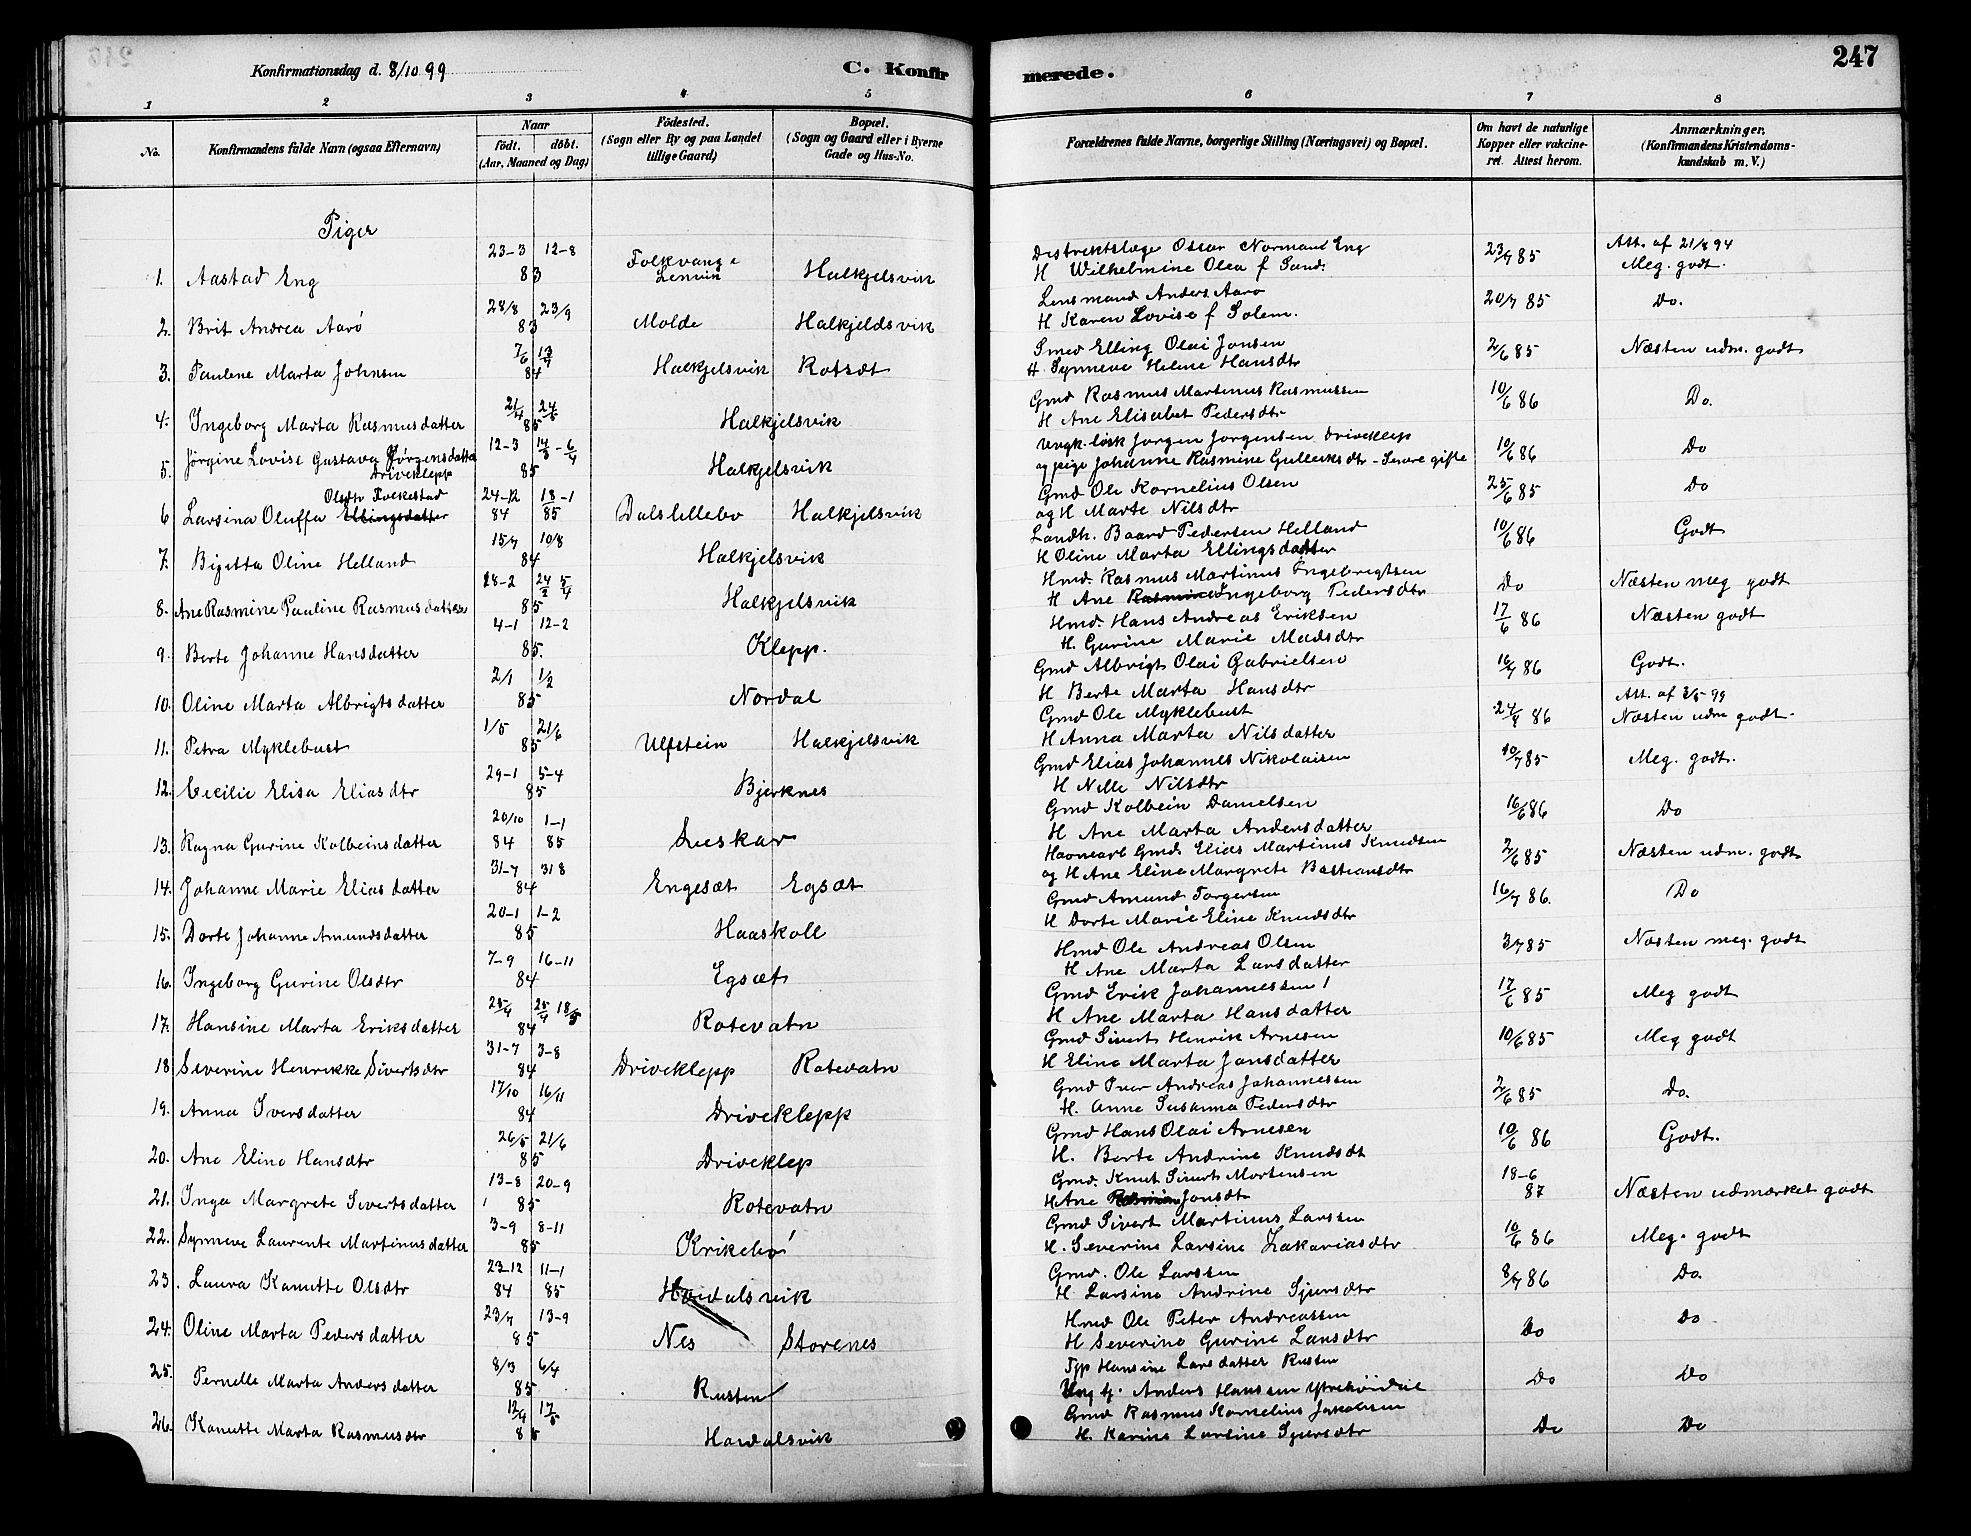 Konfirmationsdag d. 8/10 99
C. Konfirmerede.
247
1 2 3 4 5 6 7 8
No.
Konfirmandens fulde Navn (ogsaa Efternavn)
Naar
födt. döbt.
(Aar, Maaned og Dag)
Födested.
(Sogn eller By og paa Landet tillige Gaard)
Bopæl.
(Sogn og Gaard eller i Byerne Gade og Hus-No.
Forældrenes fulde Navne, borgerlige Stilling (Næringsvei) og Bopæl.
Om havt de naturlige Kopper eller vakcineret. Attest herom.
Anmærkninger.
(Konfirmandens Kristendomskundskab m. V.)
Piger
1. Aastad Eng 23-3 12-8 83 Folkvang i Lenvik Halkjelsvik Distriktslæge Oscar Normand Eng H Wilhelmine Olea f Sand. 23/7 85 Att. af 21/8 94 Meg. godt.
2. Brit Andrea Aarö 28/8 23/9 83 Molde Halkjeldsvik Lensmand Anders Aarö H Karen Lovise f Solem. 20/7 85 Do.
3. Pauline Marta Johnsen 7/6 13/7 84 Halkjelsvik Rotsæt Smed Elling Olai Jonsen H Synneve Heline Hansdtr 2/6 85 Næsten udm. godt
4. Ingeborg Marta Rasmusdatter 21/4 24/5 85 Halkjelsvik Gmd Rasmus Martinus Rasmussen H Ane Elisabet Pedersdtr 10/6 86 Do.
5. Jörgine Lovise Gustava Jörgensdatter Driveklepp 12-3 14/3 - 6/4 85 Halkjelsvik Ungk. Jörgen Jörgensen Driveklep og pige Johanne Rasmine Gullaksdtr - Senere gifte 10/6 86 Do
6 Larsina Oluffa Ellingsdatter Olsdtr Folkestad 24-12 84 18-1 85 Dalslillebö Halkjelsvik Gmd Ole Kornelius Olsen og H Marte Nilsdtr 25/6 85 Do
7. Bigitta Oline Helland 15/7 10/8 84 Halkjelsvik Landh. Baard Pedersen Helland H Oline Marta Ellingsdatter 10/6 86 Godt
8. Ane Rasmine Pauline Rasmusdatter 18-2 24/2 5/4 85 Halkjelsvik Hmd. Rasmus Martinus Ingebrigtsen H Ane Rasmine Ingeborg Pedersdtr Do Næsten meg godt
9. Berte Johanne Hansdatter 4-1 12-2 85. Klepp. Hmd. Hans Andreas Eriksen H. Gurine Marie Madsdtr 17/6 86 Næsten godt
10. Oline Marta Albrigtsdatter 2/1 1/2 85 Nordal Gmd Albrigt Olai Gabrielsen H Berte Marta Hansdtr 16/7 86 Godt.
11. Petra Myklebust 1/5 21/6 85 Ulfstein Halkjelsvik Gmd Ole Myklebust H Anna Marta Nilsdatter 24/9 86 Att. af 3/5 99 Næsten udm godt.
12. Cecilie Elisa Eliasdtr 29-1 5-4 85 Bjerknes Gmd Elias Johannes Nikolaisen H Nille Nilsdtr 10/7 85 Meg. godt.
13. Ragna Gurine Kolbeinsdatter 20/10 84 1-1 85 Lueskar Gmd Kolbein Danielsen H Ane Marta Andersdatter 16/6 86 Do
14. Johanne Marie Eliasdatter 31-7 31 8 84 Engesæt Egsæt Gmd. Elias Martinus Knudsen og H Ane Eline Margrete Bastiansdtr 2/6 85 Næsten udm. godt
15. Dorte Johanne Amundsdatter 20-1 1-2 85 Haaskoll Gmd Amund Torgersen H Dorte Marie Eline Knudsdtr 16/7 86. Do
16. Ingeborg Gurine Olsdtr 7-9 16-11 84 Egsæt Hmd Ole Andreas Olsen H Ane Marta Larsdatter 3/7 85 Næsten meg. godt
17. Hansine Marta Eriksdatter 25/4 25/4 18/5 84 Rotevatn Gmd Erik Johannessen H Ane Marta Hansdatter 17/6 85 Meg godt
18 Severine Henrikke Sivertsdtr 31-7 3-8 84 Driveklepp Rotevatn Gmd Sivert Henrik Arnesen H Eline Marta Jonsdatter 10/6 85 Meg godt
19. Anna Iversdatter 17/10 16/11 84 Driveklepp Gmd Iver Andreas Johannessen H. Anne Susanna Pedersdtr 2/6 85 Do.
20. Ane Eline Hansdtr 26/5 21/6 85 Driveklep Gmd Hans Olai Arnesen H. Berte Andrine Knudsdt 10/6 86 Godt.
21. Inga Margrete Sivertsdatter 13-8 20-9 85 Rotevatn Gmd. Knut Sivert Mortensen H Ane Rasmine Jonsdtr 18-6 87 Næsten udmærket godt
22. Synneve Laurente Martinusdatter 3-9 8-11 85 Krikebö Gmd Sivert Martinus Larssen H. Severine Larsine Zakariasdtr 10/6 86 Meg. godt
23. Laura Kanutte Olsdtr 23-12 84 11-1 85 Hovdalsvik Gmd. Ole Larssen H. Larsine Andrine Sjursdtr 8/7 86 Do.
24. Oline Marta Pedersdatter 23/7 13-9 85 Nes Storenes Hmd Ole Peter Andreassen H Severine Gurine Larsdtr Do Do
25. Pernelle Marta Andersdatter 8/3 6/4 85 Rusten Hansine Larsdatter Rusten Ung k. Anders Hanssen Do Do
26. Kanutte Marta Rasmusdtr 12/4 17/5 85 Hovdalsvik Gmd Rasmus Kornelius Jakobsen H. Karine Larsine Sjursdtr Do Do